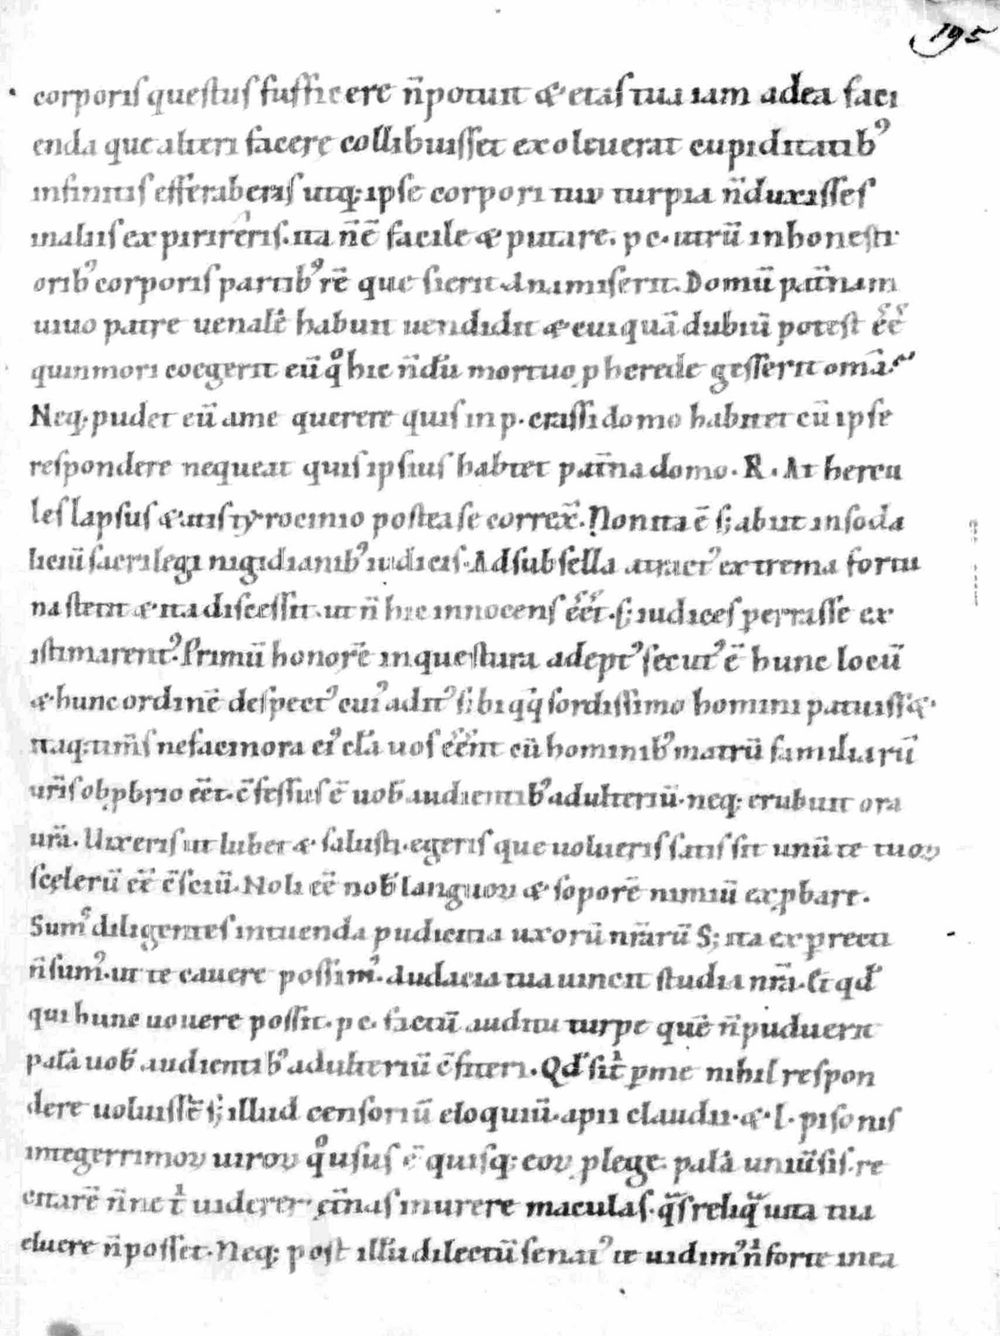 195
corporis questus sufficere n̄ potuit & etas tua iam ad ea faci
enda que alteri facere collibuisset exoleuerat cupiditatib᾿
infinitis efferaberis utq; ipse corpori tuo turpia n̄ duxisses
in aliis expirireris. ita n̄ ē facile & putare. p c. utrū inhonesti
orib᾿ corporis partib᾿ rē que sierit an amiserit. Domū pat̄nam
uiuo patre uenalē habuit uendidit & cuiquā dubiū potest ēē
quin mori coegerit eū q° hic n̄dū mortuo p herede gesserit om̄a
Neq; pudet eū a me querere quis in p. crassi domo habitet cū ipse
respondere nequeat quis ipsius habitet pat̄na domo. R. At hercu
les lapsus &atis tyrocinio postea se correx̄. Non ita ē s; abiit in soda
liciū sacrilegi nigidianib᾿ iudiciis. Ad subsella atract᾿ extrema fortu
na stetit & ita discessit. ut n̄ hic innocens ēēt. s; iudices perrasse ex
istimarent᾿. Primū honorē in questura adept᾿ secut᾿ ē hunc locū
& hunc ordinē despect᾿ cui᾿ adit᾿ sibi qq̄ sordissimo homini patuiss&.
itaq; tim̄s ne facinora ei᾿ clā uos ēēnt cū hominib᾿ matrū familiarū
ur̄is obpbrio ēēt. c̄fessus ē uob̄ audientib᾿ adulteriū. neq; erubuit ora
ur̄a. Uixeris ut lubet & salusti. egeris que uolueris satis sit unū te tuoꝝ
scelerū ēē c̄sciū. Noli ēē nob̄ languoꝝ & soporē nimiū expbare.
Sum᾿ diligentes in tuenda pudicitia uxorū nr̄arū S; ita expreci
n̄ sum᾿. ut te cauere possim᾿. audacia tua uincit studia nr̄a. Et qd̄
qui hunc uouere possit. p c. factū auditu turpe quē n̄ puduerit
palā uob̄ audientib᾿ adulteriū c̄fiteri. Qd̄ sit p me nihil respon
dere uoluissē s; illud censoriū eloquiū. apii claudii. & .l. pisonis
integerrimoꝝ uiroꝝ q° usus ē quisq; eoꝝ p lege. palā uniūsis. re
citarē n̄ne t uiderer et̄nas inurere maculas. q̄s reliq̄ uita tua
eluere n̄ posset. Neq; post illū dilectū senat᾿ te uidim᾿ n̄ forte in ea